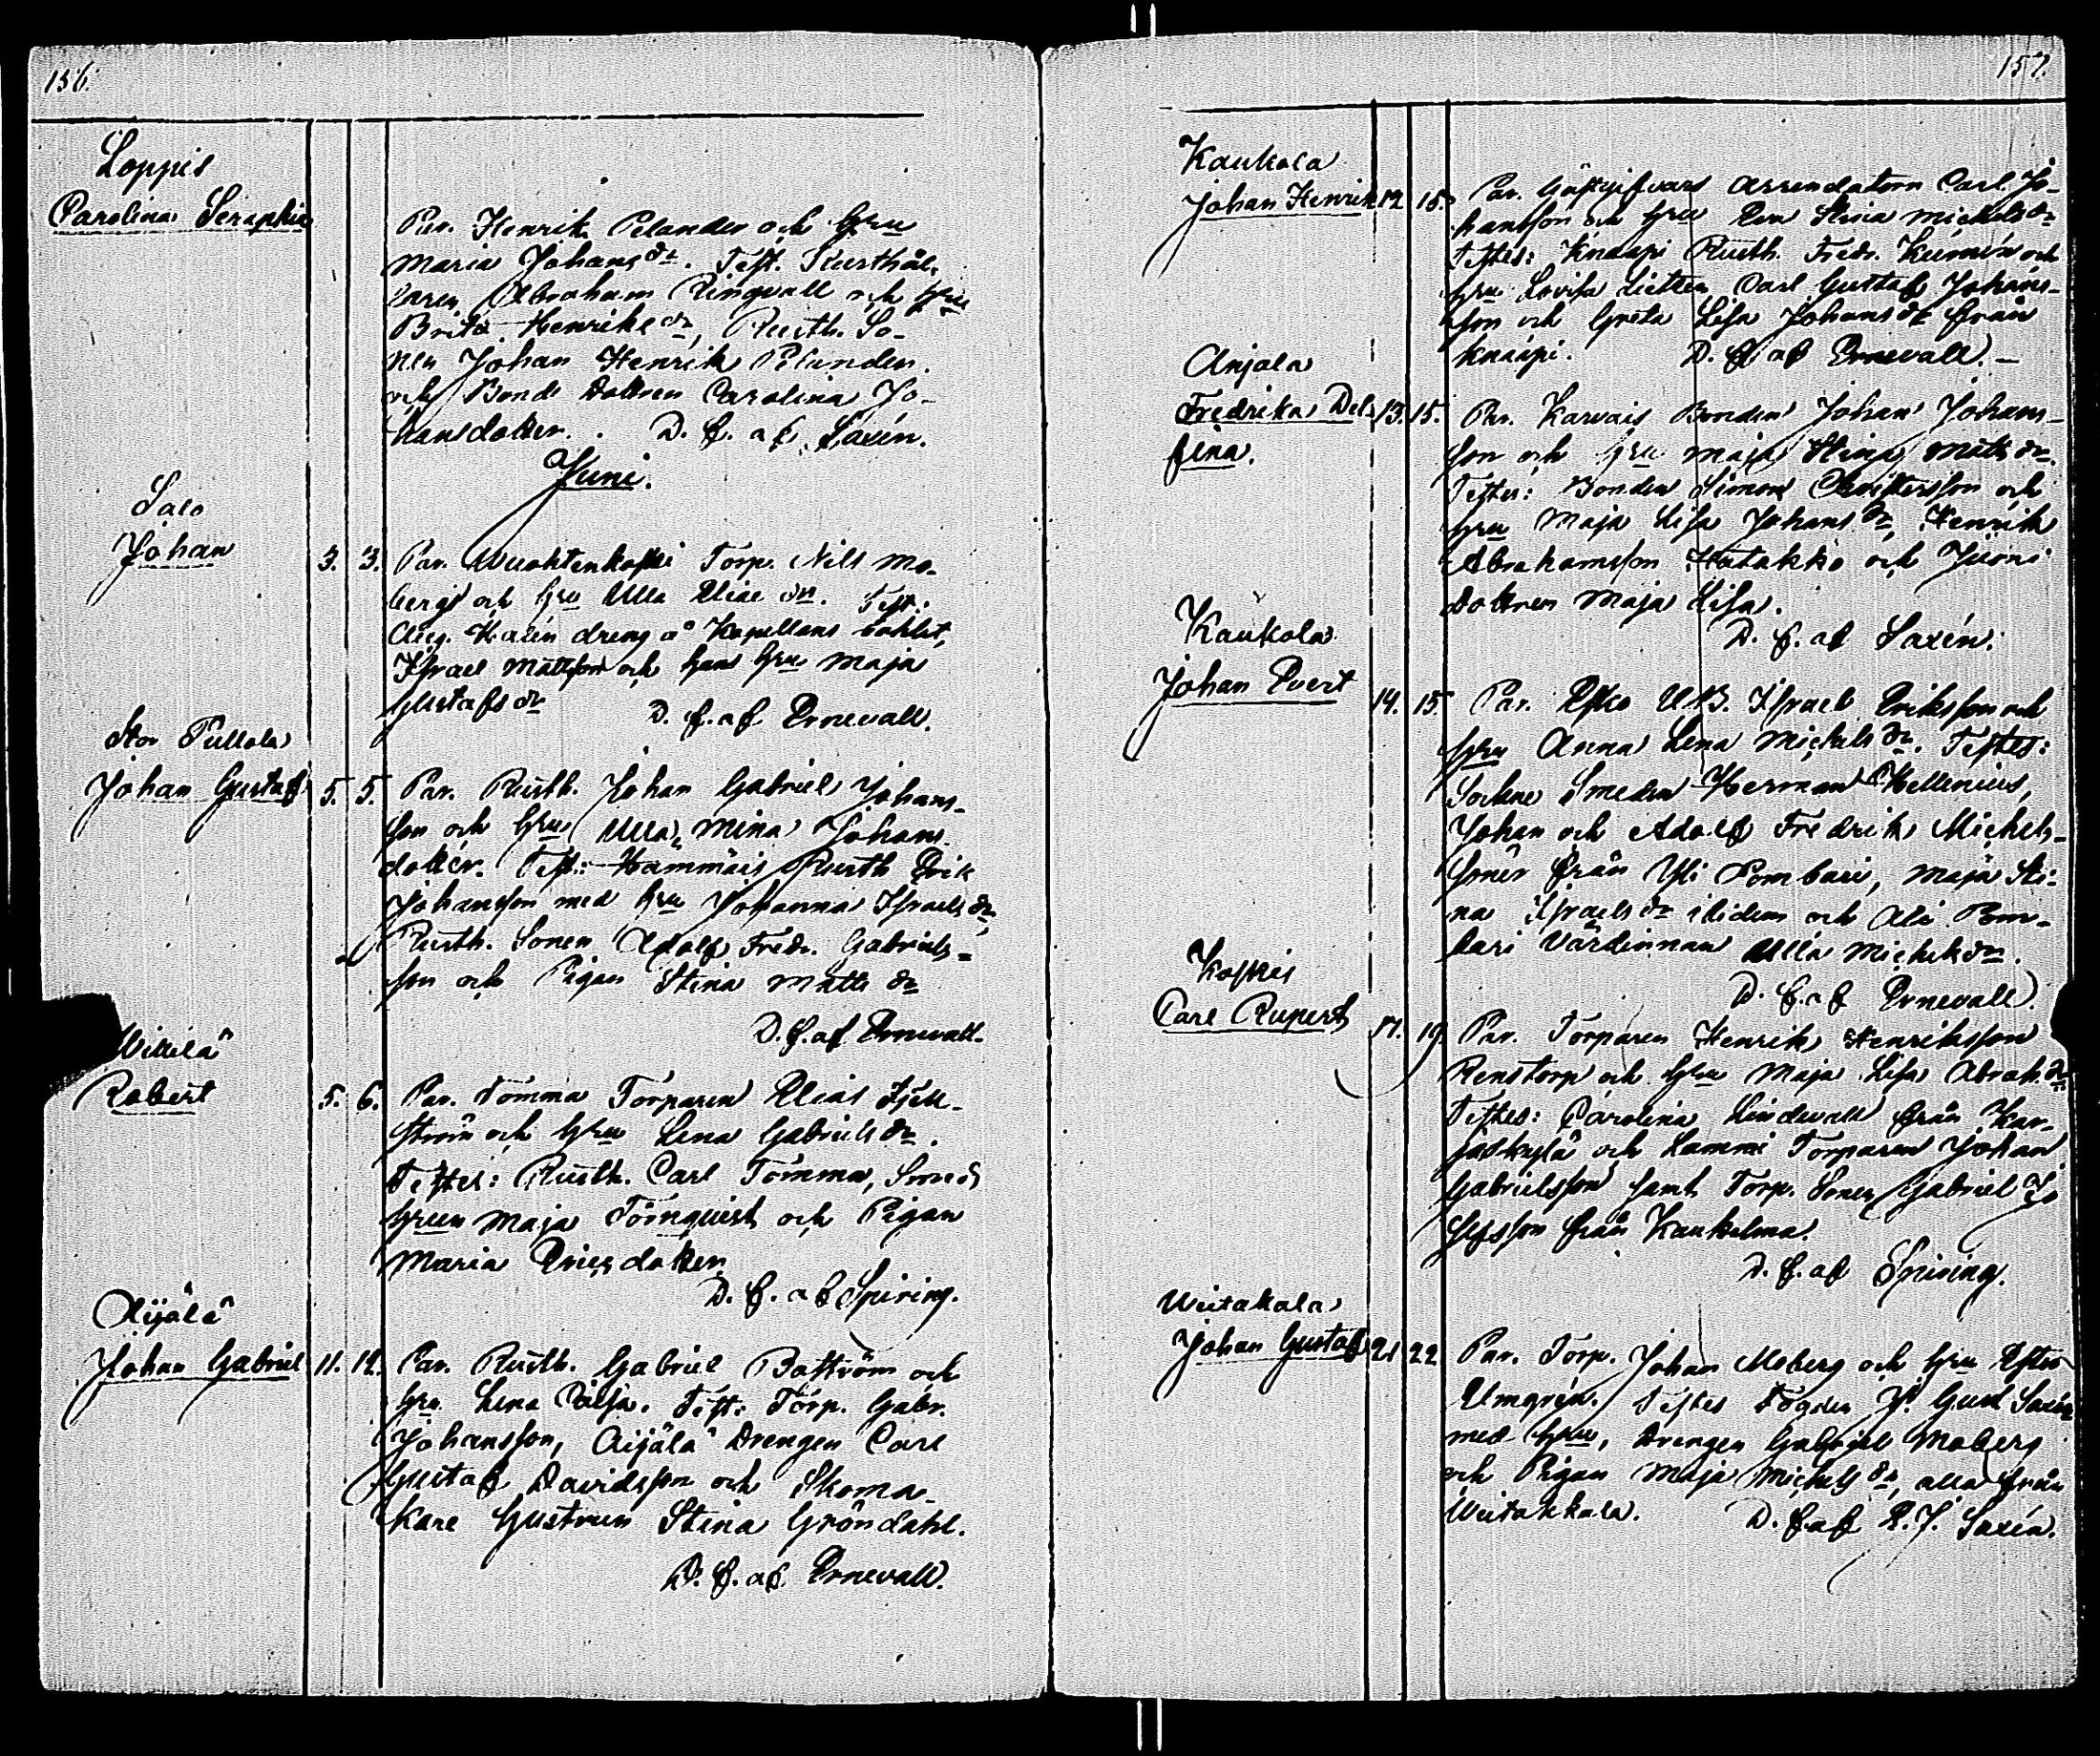 156.
Loppis
Carolina Seraphia
Par. Henrik Pelander och hru
Maria Johansdr. Test. Rusthål-
laren Abraham Ringvall och hru
Brita Henriksdr, Rusth. So-
nen Johan Henrik Pelander.
och Bonde Dottren Carolina Jo-
hansdotter. D. f. af Saxén.
Juni.
Salo
Johan 3. 3. Par. Torp. Nils Mo-
berg och hru Ulla Eliæ dr. Test.:
Aug. Halén dreng å Kapellans bohlet,
Israel Mattsson och hans hru Maja
Gustafsdr D. f. af Ernevall.
Stor Pullola
Johan Gustaf 5. 5. Par. Rusth. Johan Gabriel Johans-
son och hru Ulla Mina Johans-
dotter. Test.: Hammäis Rusth Erik
Johansson med hru Johanna Israelsdr,
Rusth. Sonen Adolf Fredr. Gabriels-
son och Pigan Stina Mattsdr
D. f. af Ernevall.
Wikilä
Robert 5. 6. Par. Tomma Torparen Elias Fjell-
ström och hru Lena Gabrielsdr.
Testes: Rusth. Carl Tomma, Smeds
hrun Maja Törnqvist och Pigan
Maria Ericsdotter
D. f. af Spiring.
Aijälä
Johan Gabriel 11. 12. Par. Rusth. Gabriel Boström och
hru Lena Test: Torp. Gabr.
Johansson, Aijälä Drengen Carl
Gustaf Davidsson och Skoma-
kare Hustrun Stina Gröndahl.
D. f. af Ernevall.
157.
Kaukola
Johan Henrik 12 15. Par. Gästgifvars Arrendatorn Carl Jo-
hansson och hru Eva Stina Mickelsdr
Testes: Knaapi Rusth. Fredr. och
hru Lovisa Carl Gustaf Johans-
son och Greta Lisa Johansdr från
Knaapi. D. f. af Ernevall.
Anjala
Fredrika Del- 13. 15. Par. Karvais Bonden Johan Johans-
fina. son och hru Maja Stina Mattsdr.
Testes: Bonden Simon Christersson och
hru Maja Lisa Johansdr, Henrik
Abrahamsson Hatakko och Juoni
Dottren Maja Lisa.
D. f. af Saxén.
Kaukola
Johan Evert 14. 15. Par. Israel Eriksson och
hru Anna Lena Mickelsdr. Testes:
Sockne Smeden Herman Hellenius,
Johan och Adolf Fredrik Michels-
söner från Yli Pombari, Maja Sti-
na Israelsdr ibidem och Ala Pom-
bari Värdinnan Ulla Mickelsdr.
D. f. af Ernevall.
Koskis
Carl Rupert 17. 19. Par. Torparen Henrik Henriksson
Renstorp och hru Maja Lisa Abrah.dr
Testes: Carolina Lindevall från Kar-
jaskylä och Lammi Torparen Johan
Gabrielsson samt Torp. Sonen Gabriel Jo
sefsson från Kaukelma.
D. f. af Spiring.
Wiitakala
Johan Gustaf 21 22 Par. Torp. Johan Moberg och hru Ester
Almgrén. Testes Fogden J. Gust Saxén
med hru, Drengen Gabriel Moberg
och Pigan Maja Mickelsdr, alla från
Wiitakkala. D. f. af E. J. Saxén.